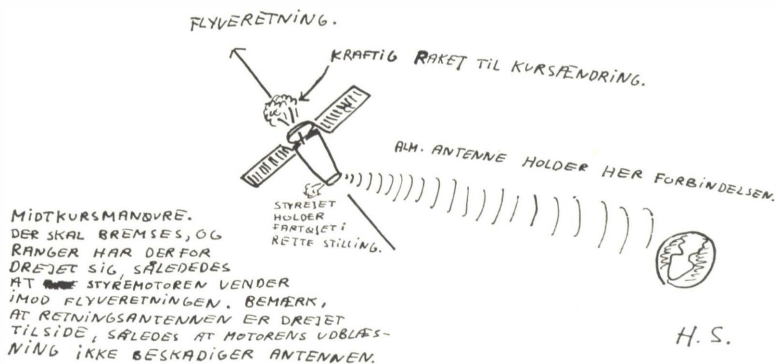 FLYVERETNING.
KRAFTIG RAKET TIL KURSÆNDRING.
ALM. ANTENNE HOLDER HER FORBINDELSEN.
STYREJET
HOLDER
FARTØJET I
RETTE STILLING.
MIDTKURSMANØVRE.
DER SKAL BREMSES, OG
RANGER HAR DERFOR
DREJET SIG, SÅLEDEDES
AT STYREMOTOREN VENDER
IMOD FLYVERETNINGEN. BEMÆRK,
AT RETNINGSANTENNEN ER DREJET
TILSIDE, SÅLEDES AT MOTORENS UDBLÆS-
NING IKKE BESKADIGER ANTENNEN.
H.S.